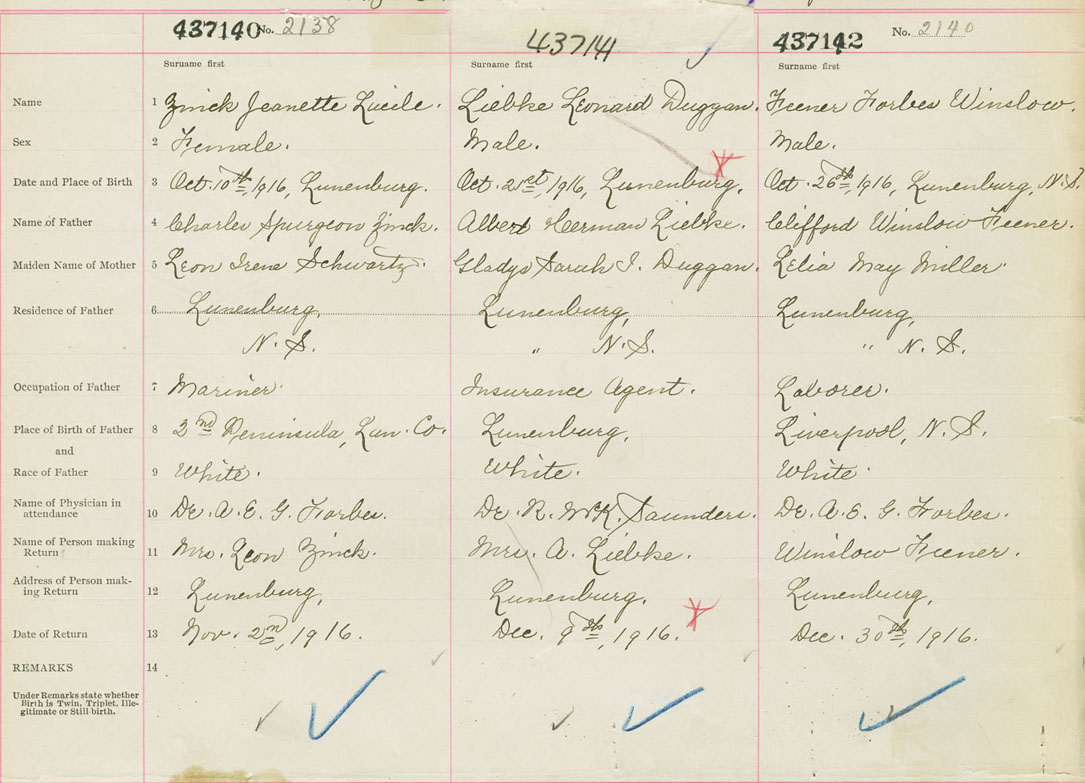 437140 No. 2138 437141 437142 No. 2140
Surname first Surname first Surname first
Name 1 Zinck Jeanette Lucile. Liebke Leonard Duggan. Feener Forbes Winslow.
Sex 2 Female. Male. Male.
Date and Place of Birth 3 Oct. 10th, 1916, Lunenburg. Oct. 21st, 1916, Lunenburg, Oct. 26th, 1916, Lunenburg, N.S.
Name of Father 4 Charles Spurgeon Zinck. Albert Herman Liebke. Clifford Winslow Feener.
Maiden Name of Mother 5 Leon Irene Schwartz. Gladys Sarah J. Duggan. Lelia May Miller.
Residence of Father 6 Lunenburg, Lunenburg, Lunenburg,
N. S. " N. S. " N. S.
Occupation of Father 7 Mariner. Insurance Agent. Laborer.
Place of Birth of Father 8 2nd Peninsula, Lun. Co. Lunenburg, Liverpool, N. S.
and
Race of Father 9 White. White. White.
Name of Physician in
attendance 10 Dr. A. E. G. Forbes. Dr. R. McK. Saunders. Dr. A. E. G. Forbes.
Name of Person making
Return 11 Mrs. Leon Zinck. Mrs. A. Liebke. Winslow Feener.
Address of Person mak-
ing Return 12 Lunenburg, Lunenburg. Lunenburg,
Date of Return 13 Nov. 2nd, 1916. Dec. 9th, 1916. Dec. 30th, 1916.
REMARKS 14
Under Remarks state whether
Birth is Twin, Triplet, Ille-
gitimate or Still-birth.